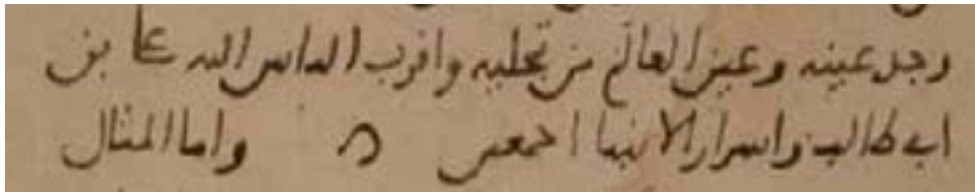 وجد عينه وعين العالم من تجليه واقرب الناس اليه علي بن
ابي طالب واسرار الانبيا اجمعين ۞ واما المثال